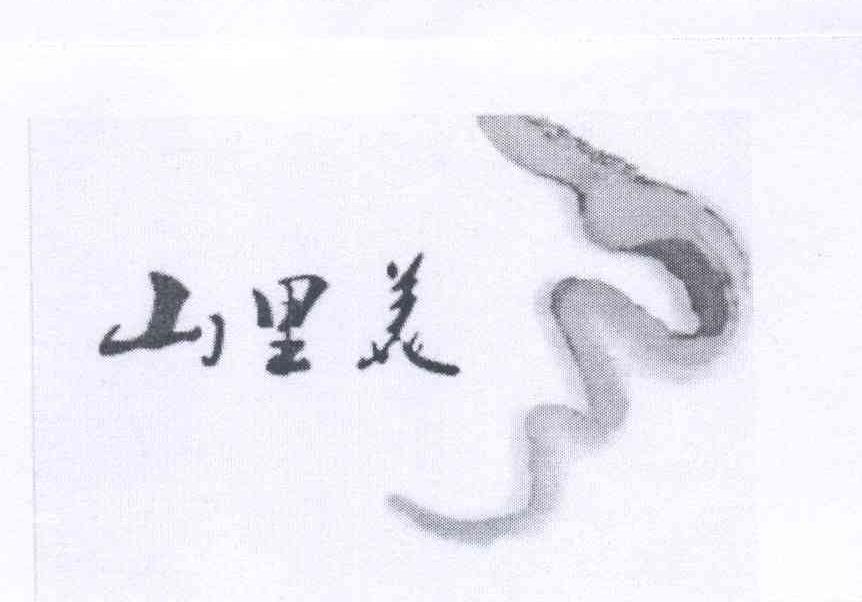 山里美